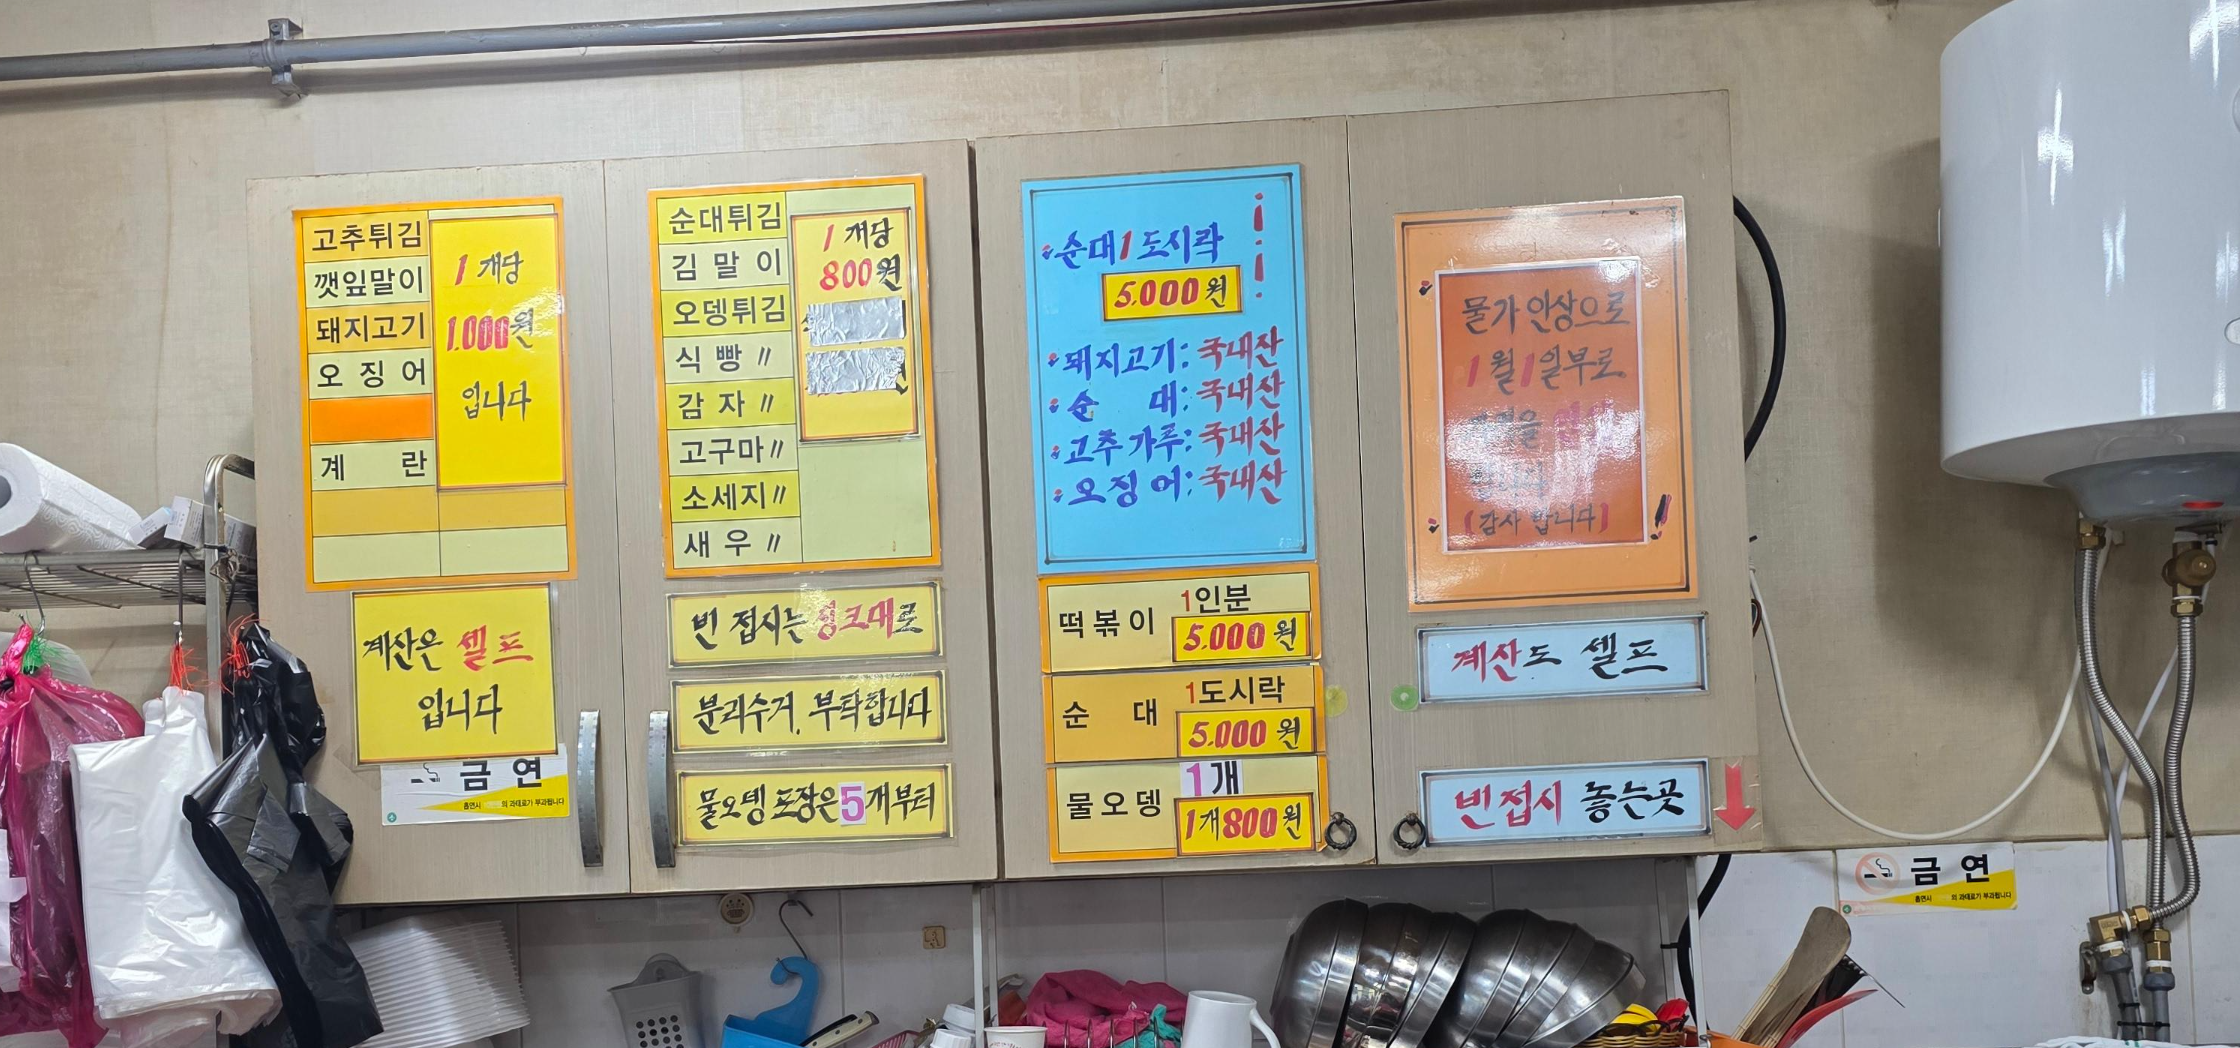 고추튀김
깻잎말이
돼지고기
오징어
계란
1개당
1.000원
입니다
계산은 셀프
입니다
금연
흡연시 의 과태료가 부과됩니다
순대튀김
김말이
오뎅튀김
식빵〃
감자〃
고구마〃
소세지〃
새우〃
1개당
800원
빈 접시는 씽크대로
분리수거, 부탁합니다
물오뎅 포장은 5개부터
순대1도시락
5.000원
돼지고기: 국내산
순대: 국내산
고추가루: 국내산
오징어: 국내산
떡볶이 1인분
5.000원
순대 1도시락
5.000원
물오뎅 1개
1개800원
물가 인상으로
1월1일부로
(감사 합니다)
계산도 셀프
빈접시 놓는곳
금연
흡연시 의 과태료가 부과됩니다